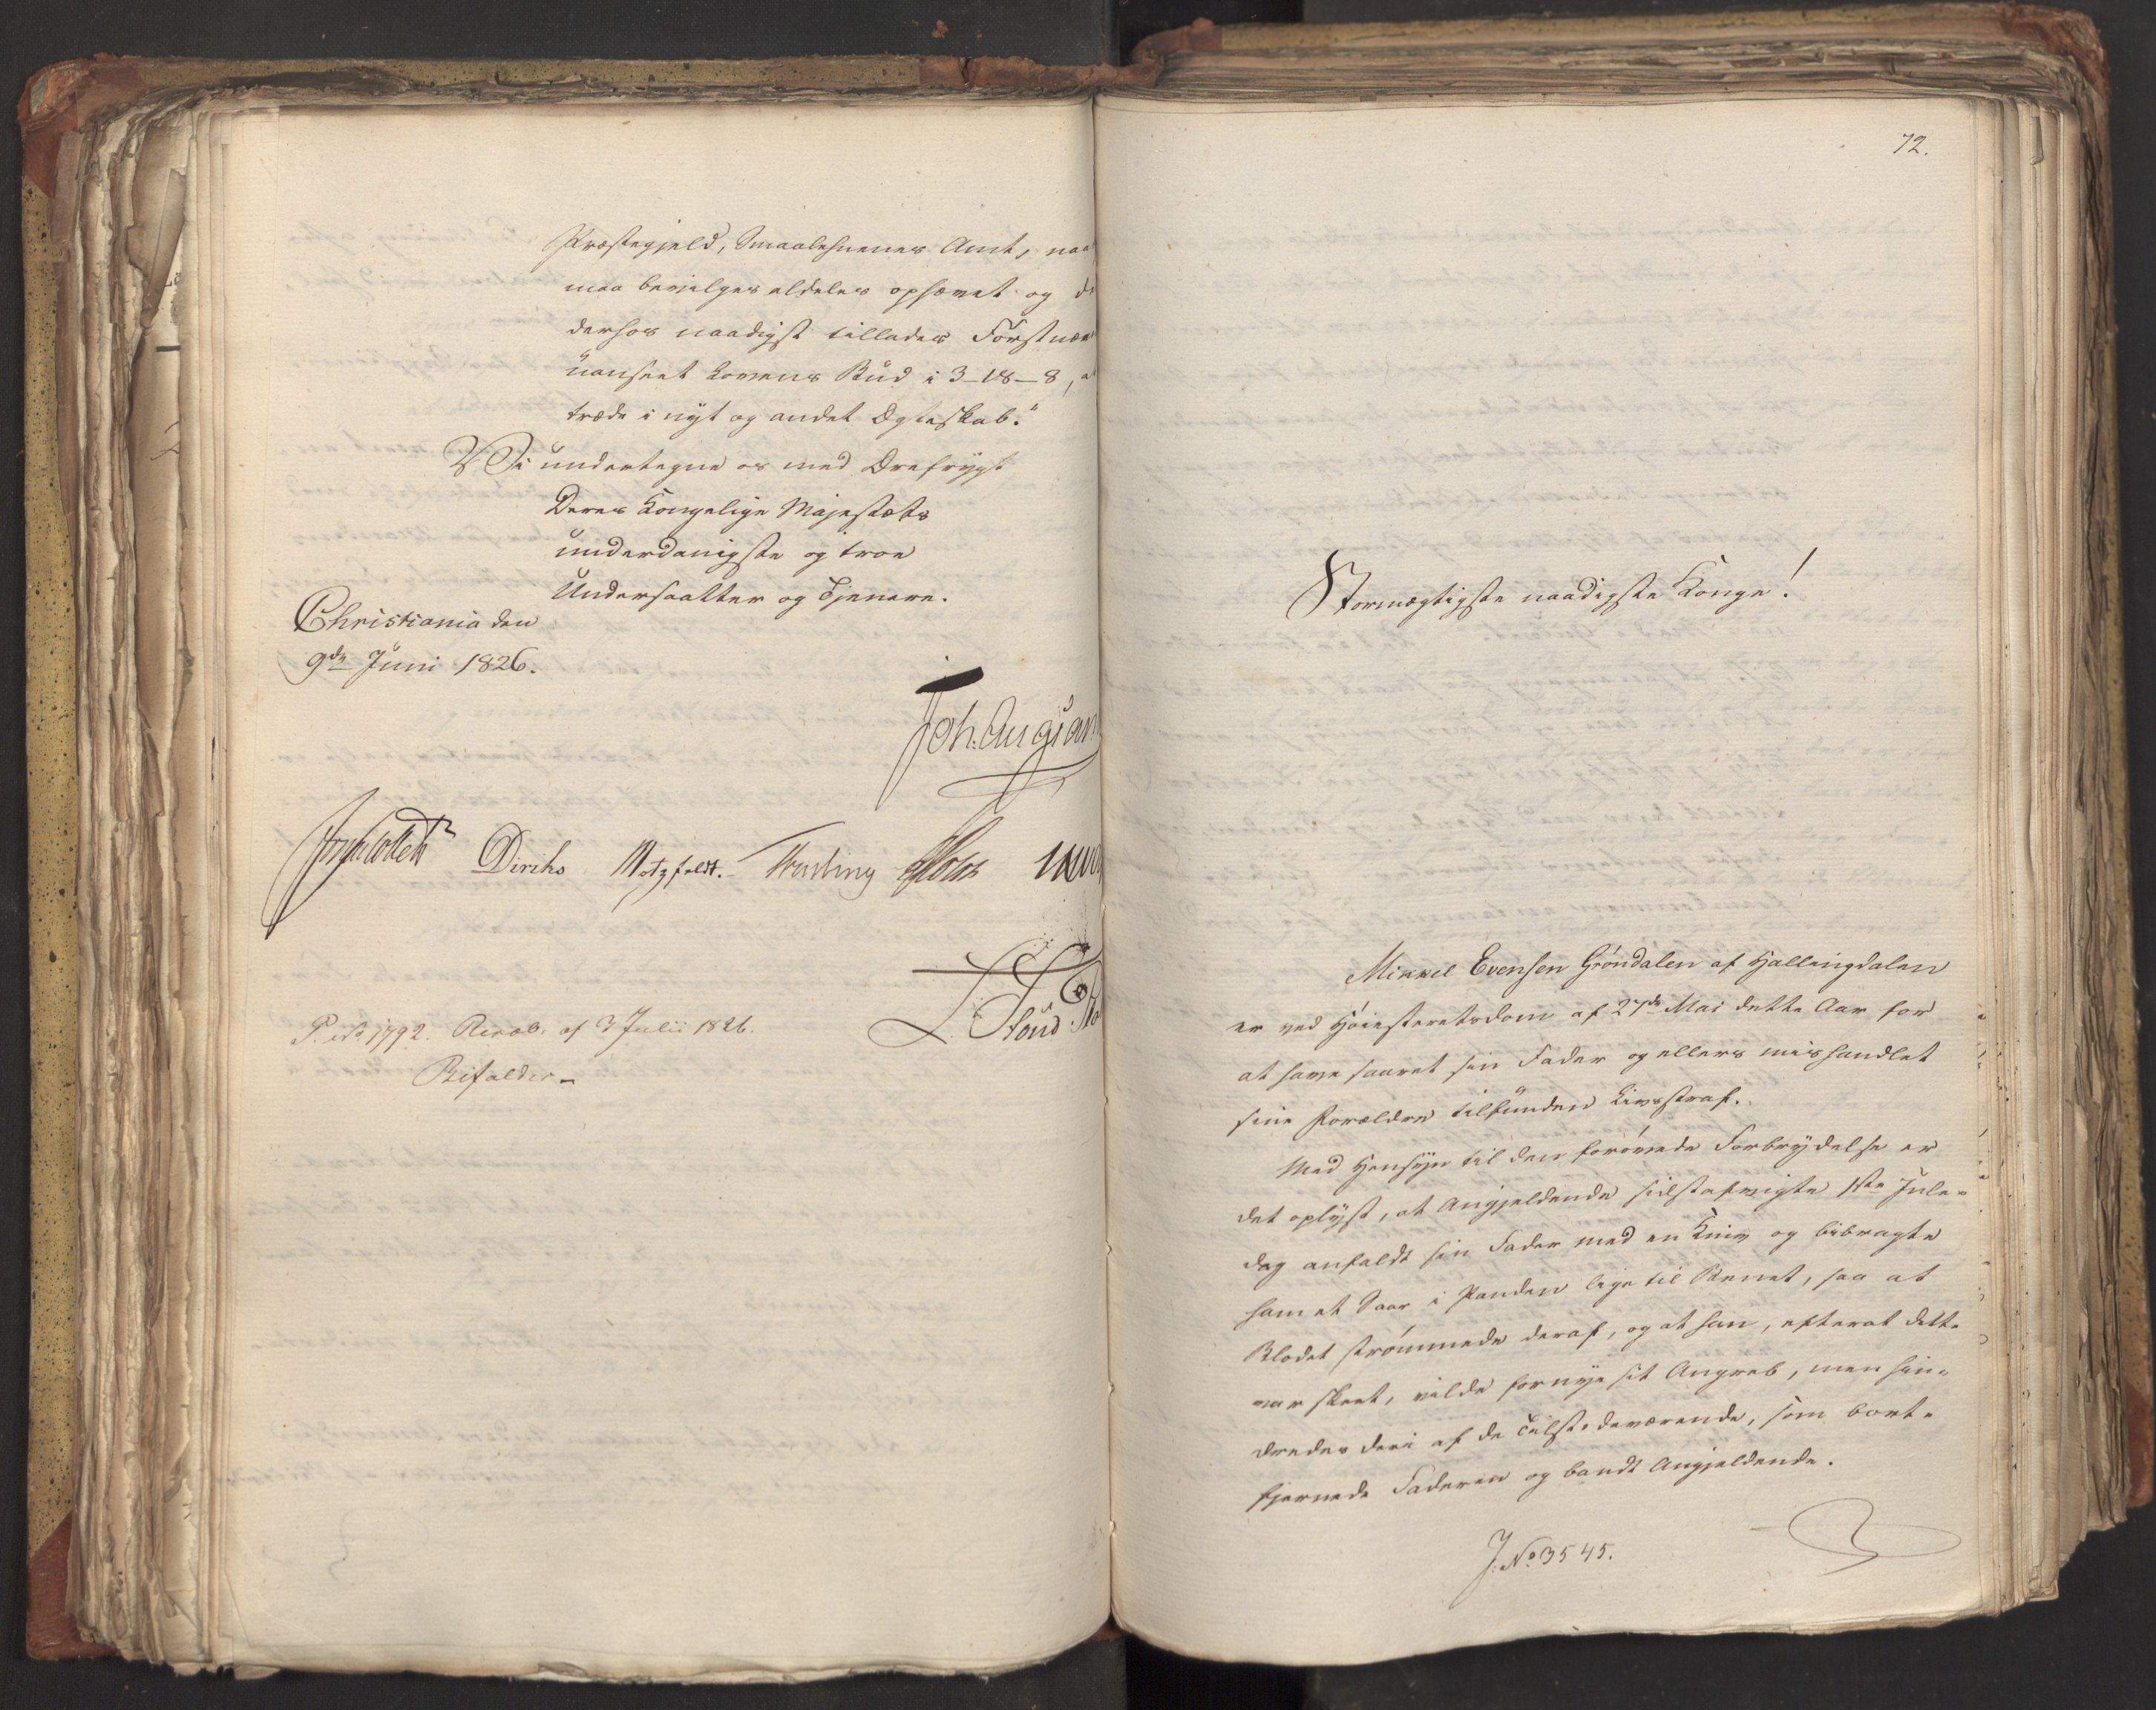 Præstegjeld, Smaalehnenes Amt, naa
maa bevilges aldeles ophævet og d
derhos naadigst tillades Førstnæv
uanseet Lovens Bud i 3-18-8, a
træde i nyt og andet Ægteskab."
Vi undertegne os med Ærefrygt
Deres Kongelige Majestæts
underdanigste og troe
Undersaatter og Tjenere.
Christiania den
9de Juni 1826.
Joh. Aug. San
Jonas Collett Diriks Motzfeldt. Treschow Holst
L. Stoud Pla
P. No 1792. Resol. af 3 Julii 1826.
Bifaldes.
72.
Stormægtigste naadigste Konge!
Mikkel Evensen Grøndalen af Hallingdalen
er ved Høiesteretsdom af 27de Mai dette Aar for
at have saaret sin Fader og ellers mishandlet
sine Forældre tilfunden Livsstraf.
Med Hensyn til den forøvede Forbrydelse er
det oplyst, at Angjeldende sidstafvigte 1ste Jule-
dag anfaldt sin Fader med en Kniv og bibragte
ham et Saar i Panden lige til Benet, saa at
Blodet strømmede deraf, og at han, efterat dette
var skeet, vilde fornye sit Angreb, men hin-
dredes deri af de Tilstedeværende, som bort-
fjernede Faderen og bandt Angjeldende.
J. No 3545.